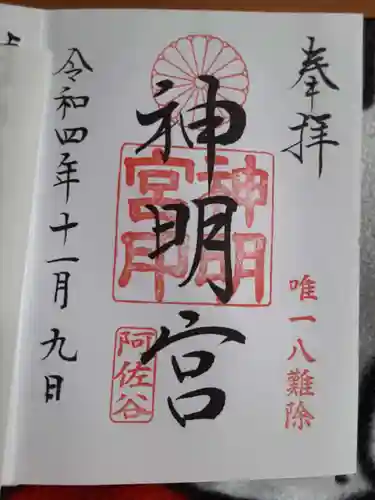 奉拝
唯一八難除
神明宮
神明
宮印
阿佐谷
令和四年十一月九日
上